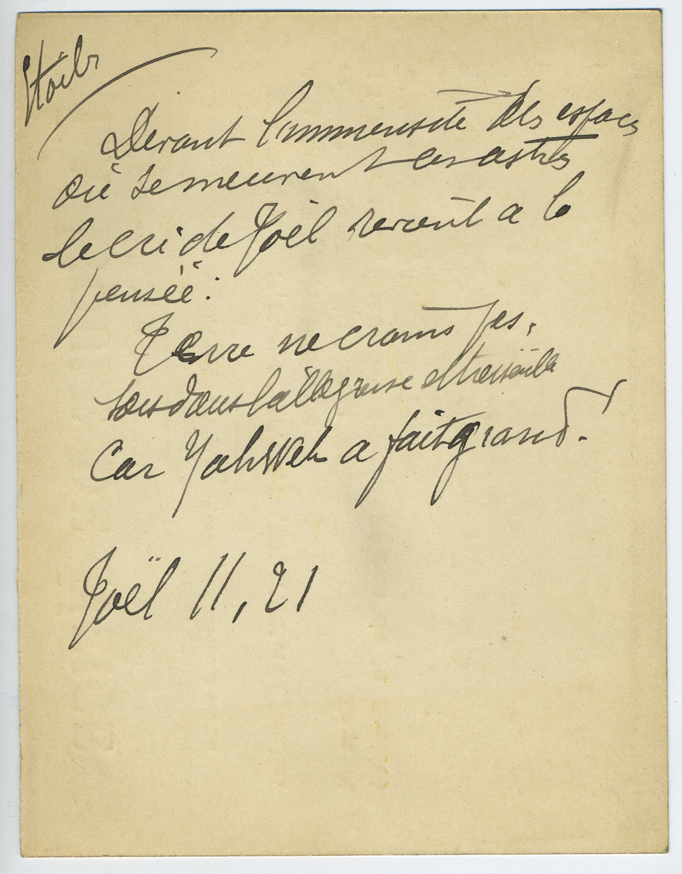 Etoiles
Devant l'immensité des espaces
où se meuvent ces astres
le cri de Joël revient a la
pensée :
Terre ne crains pas,
sois dans l'allégresse et tressaille
Car Yahweh a fait grand.
Joël II, 21